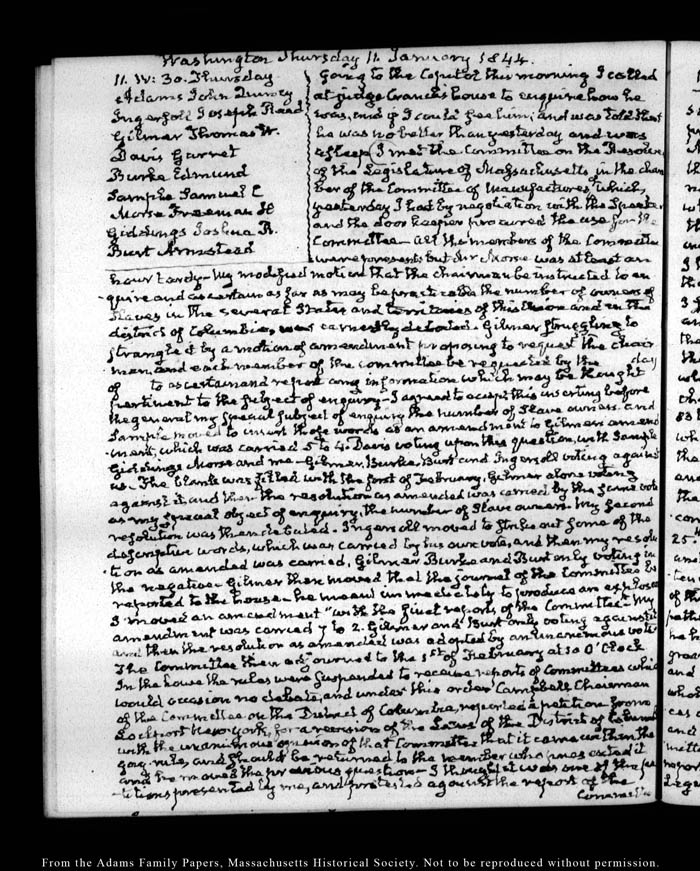 Washington Thursday 11. January 1844.
11. IV: 30. Thursday
Adams John Quincy
Ingersoll Joseph Reed
Gilmer Thomas W.
Davis Garret
Burke Edmund
Sample Samuel C
Morse Freeman H
Giddings Joshua R.
Burt Armstead
Going to the Capitol this morning I called
at judge house to enquire how he
was, and if I could see him; and was told that
he was no better than yesterday and was
asleep. I met the Committee on the Resolves
of the Legislature of Massachusetts, in the cham
ber of the Committee of Manufactures, which,
yesterday I had by negotiation with the Speaker
and the door keeper procured the use for the
Committee— all the members of the Committee
were present but Mr Morse was at least an
hour tardy— My modified motion that the chairman be instructed to en
quire and ascertain as far as may be practicable the number of owners of
slaves in the several States and territories of this Union and in the
district of Columbia, was carried by debated. Gilmer struggling to
strangle it by a motion of amendment proposing to request the chair
man, and each member of the committee be requested by the day
of to ascertain and report any information which may be thought
pertinent to the subject of enquiry— I agreed to accept this inserting before
the general my special subject of enquiry the number of slave owners. and
Sample moved to insert those words as an amendment to Gilmer's amend
ment, which was carried 5 to 4. Davis voting upon this question, with Sample
Giddings Morse and me— Gilmer, Burke, Burt and Ingersoll voting against
us. The blank was filled with the first of February, Gilmer alone voting
against it and then the resolution as amended was carried by the same vote
as my special object of enquiry, the number of slave owners. My second
resolution was then debated. Ingersoll moved to strike out some of the
descriptive words, which was carried by his own vote, and then my resolu
tion as amended was carried, Gilmer Burke and Burt only voting in
the negative. Gilmer then moved that the journal of the Committee be
reported to the house— he meant immediately to produce an
I moved an amendment "with the final reports of the Committee." My
amendment was carried 7 to 2. Gilmer and Burt only voting against it
and then the resolution as amended was adopted by an unanimous vote
The Committee then adjourned to the 1st of February at 10 O'Clock
In the house the rules were suspended to receive reports of Committees which
would occasion no debate, and under this order Campbell Chairman
of the Committee on the District of Columbia, reported a petition from
Lockport New York, for a revision of the Laws of the District of Columbia
with the unanimous opinion of that Committee that it came within the
gag-rule, and should be returned to the member who presented it
and he moved the previous question— I thought it was one of the pe
titions presented by me, and protested against the report of the
Committee
From the Adams Family Papers, Massachusetts Historical Society. Not to be reproduced without permission.